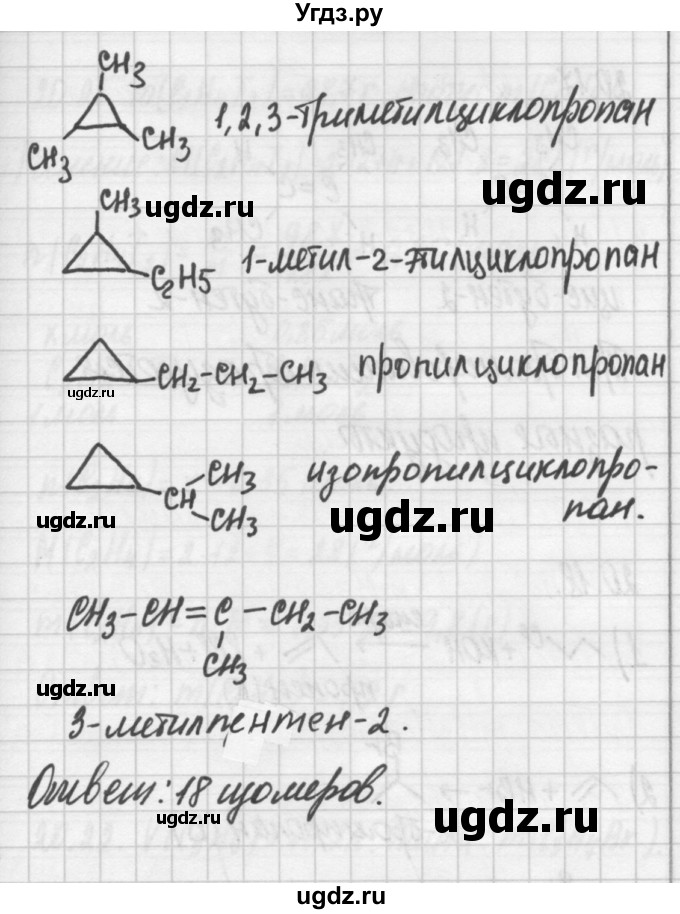 Угдз.ру
CH3
CH3 CH3 1,2,3-триметилциклопропан
ugdz.ru
CH3
ugdz.ru
C2H5 1-метил-2-этилциклопропан
CH2-CH2-CH3 пропилциклопропан
ugdz.ru
CH3
CH
CH3
изопропилциклопро-
пан.
ugdz.ru
ugdz.ru
CH3-CH=C-CH2-CH3
CH3
ugdz.ru
3-метилпентен-2.
Ответ: 18 изомеров.
ugdz.ru
ugdz.ru
ugdz.ru